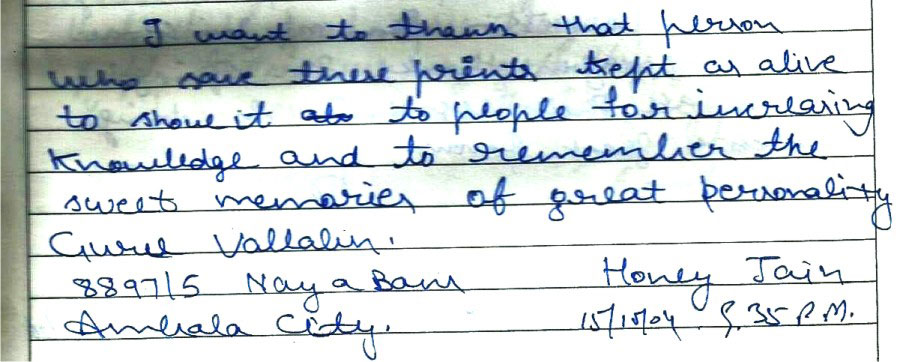 I want to thank that person
who save these prints kept as alive
to show it to people for increasing
knowledge and to remember the
sweet memories of great personality
Guru
8897/5 Naya Bans Honey Jain
Ambala City. 15/10/04 9.35 P.M.